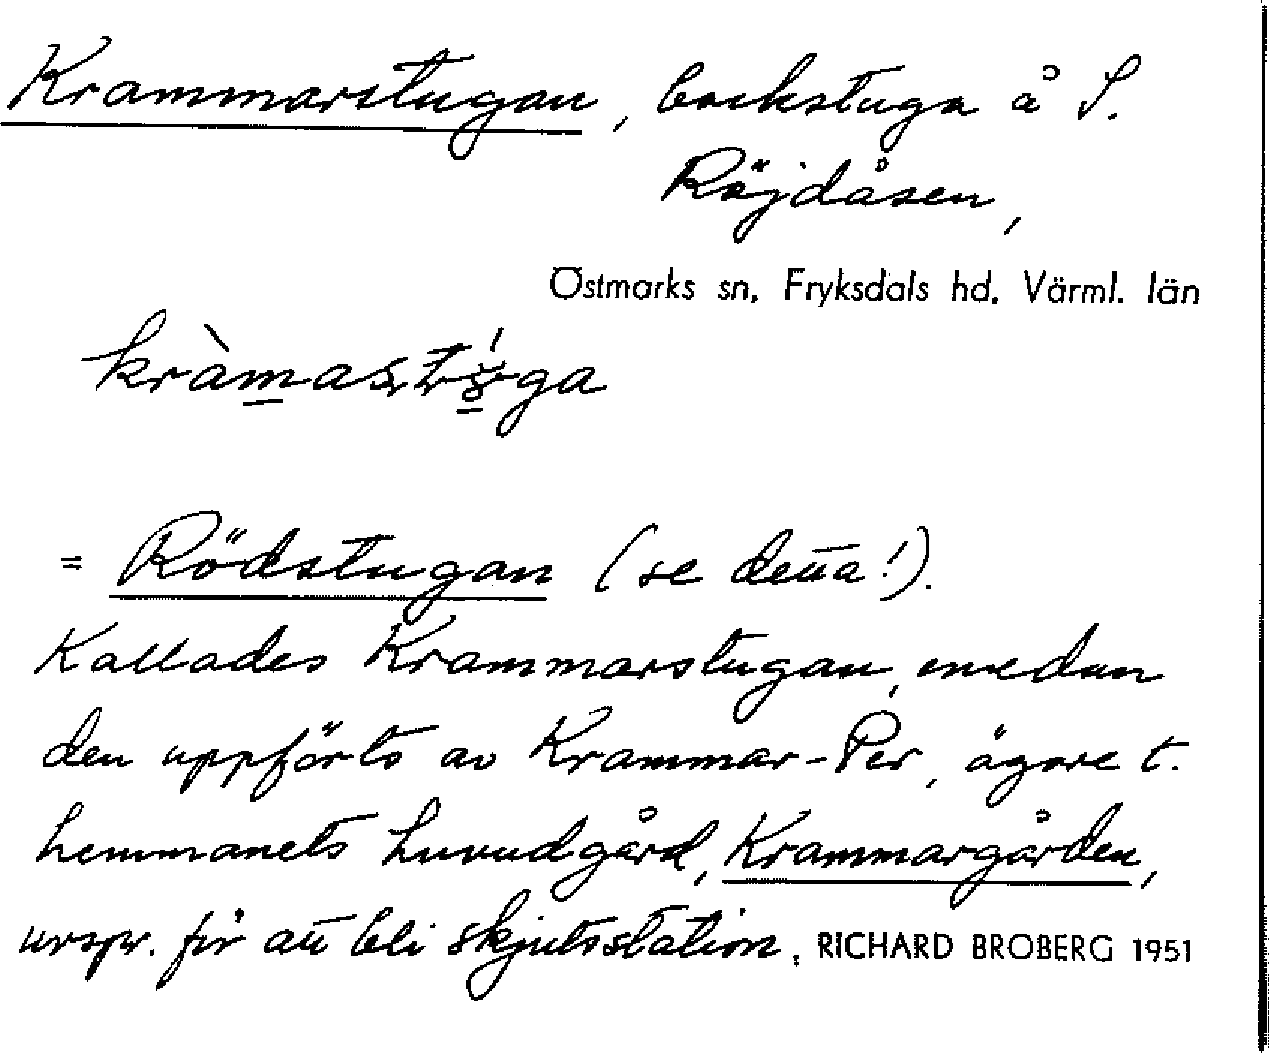 Krammarstugan, backstuga å S.
Röjdåsen,
Östmarks sn. Fryksdals hd. Värml. län
= Rödstugan (se detta!).
Kallades Krammarstugan, emedan
den uppförts av Krammar-Per, ägare t.
hemmanets huvudgård, Krammargården,
urspr. för att bli skjutsstation. RICHARD BROBERG 1951